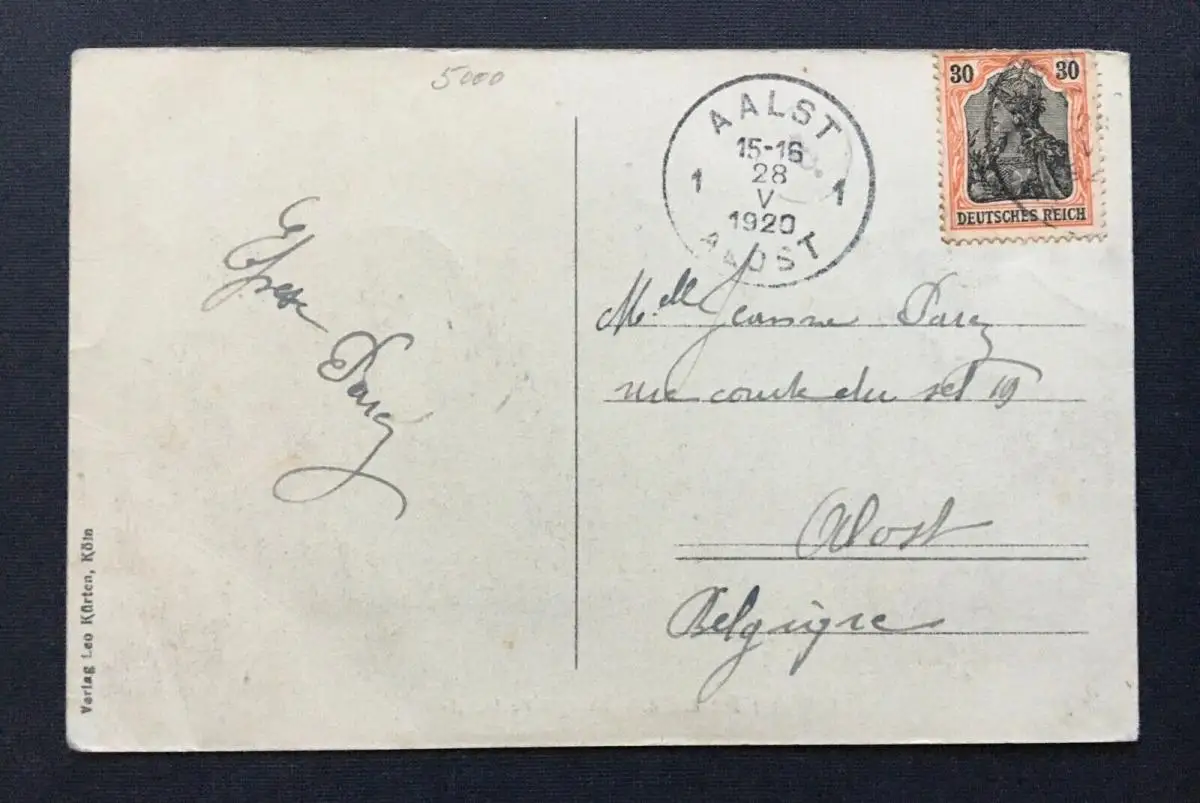 5000
AALST
15-16
28
V
1920
1 1
AALOST
30 30
DEUTSCHES REICH
Melle Jeanne Darcy
rue comte du sel 19
Alost
Belgique
Darcy
Verlag Leo Kürten, Köln